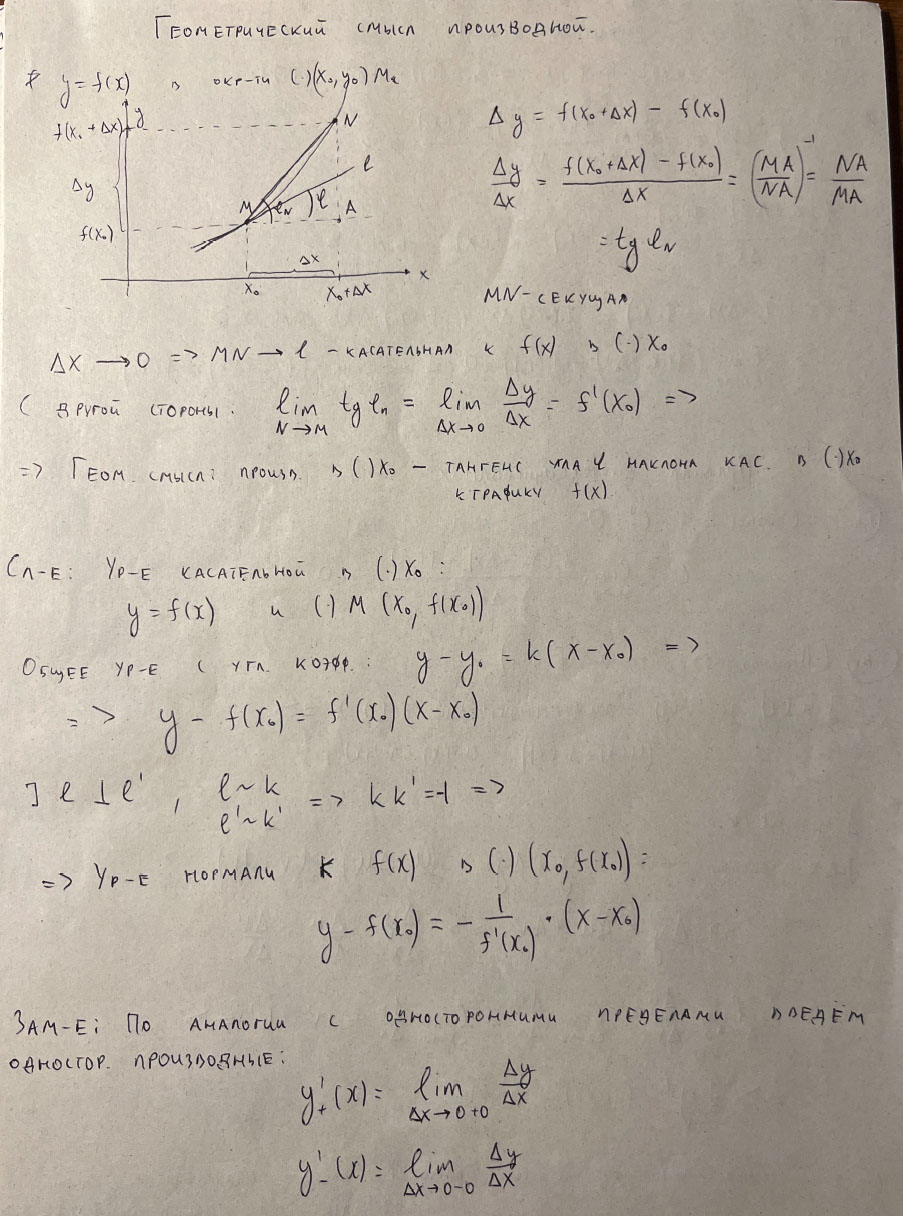 Геометрический смысл производной.
∀ y = f(x) в окр-ти (·)(x₀, y₀) M₀
f(x₀ + Δx) y N
Δy l
M φ_N φ A
f(x₀) Δx
x₀ x₀+Δx x
Δy = f(x₀+Δx) − f(x₀)
Δy/Δx = (f(x₀+Δx) − f(x₀))/Δx = (MA/NA)⁻¹ = NA/MA
= tg φ_N
MN – секущая
Δx → 0 => MN → l – касательная к f(x) в (·) x₀
С другой стороны: lim_{N→M} tg φ_n = lim_{Δx→0} Δy/Δx = f'(x₀) =>
=> Геом. смысл: произв. в (·) x₀ – тангенс угла φ наклона кас. в (·) x₀
к графику f(x).
Сл-е: Ур-е касательной в (·) x₀ :
y = f(x) и (·) M (x₀, f(x₀))
Общее ур-е с угл. коэфф.: y − y₀ = k(x − x₀) =>
=> y − f(x₀) = f'(x₀)(x − x₀)
] l ⊥ l' , l ~ k
l' ~ k' => kk' = −1 =>
=> Ур-е нормали к f(x) в (·) (x₀, f(x₀)):
y − f(x₀) = − 1/f'(x₀) · (x − x₀)
Зам-е: По аналогии с односторонними пределами введём
одностор. производные:
y'₊(x) = lim_{Δx→0+0} Δy/Δx
y'₋(x) = lim_{Δx→0−0} Δy/Δx